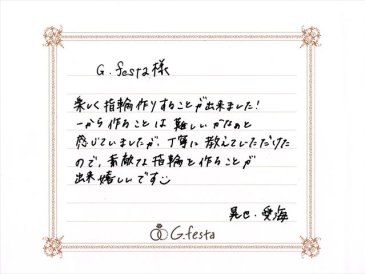 G.festa様
楽しく指輪作りすることが出来ました!
一から作ることは難しいかなぁと
感じていましたが、丁寧に教えていただけた
ので、素敵な指輪を作ることが
出来嬉しいです
晃巳・愛海
G.festa